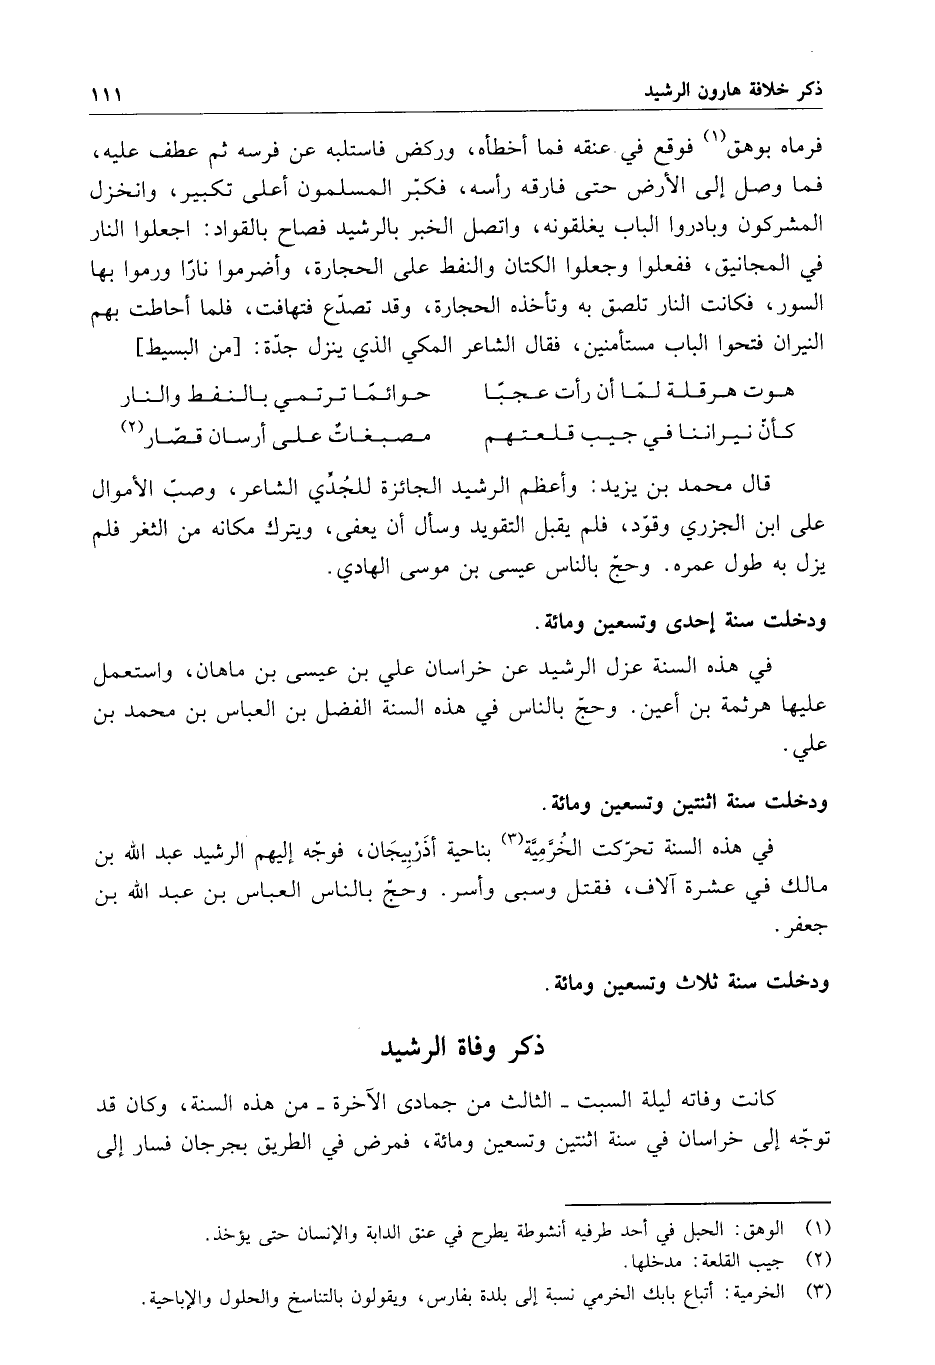 ذكر خلافة هارون الرشيد ١١١
فرماه بوهق(١) فوقع في عنقه فما أخطأه، وركض فاستلبه عن فرسه ثم عطف عليه،
فما وصل إلى الأرض حتى فارقه رأسه، فكبّر المسلمون أعلى تكبير، وانخزل
المشركون وبادروا الباب يغلقونه، واتصل الخبر بالرشيد فصاح بالقواد: اجعلوا النار
في المجانيق، ففعلوا وجعلوا الكتان والنفط على الحجارة، وأضرموا نارًا ورموا بها
السور، فكانت النار تلصق به وتأخذه الحجارة، وقد تصدّع فتهافت، فلما أحاطت بهم
النيران فتحوا الباب مستأمنين، فقال الشاعر المكي الذي ينزل جدّة: [من البسيط]
هوت هرقلة لمّا أن رأت عجبًا حوائمًا ترتمي بالنفط والنار
كأنّ نيراننا في جيب قلعتهم مصبغاتٌ على أرسان قصّار(٢)
قال محمد بن يزيد: وأعظم الرشيد الجائزة للجُدِّي الشاعر، وصبّ الأموال
على ابن الجزري وقوّد، فلم يقبل التقويد وسأل أن يعفى، ويترك مكانه من الثغر فلم
يزل به طول عمره. وحجّ بالناس عيسى بن موسى الهادي.
ودخلت سنة إحدى وتسعين ومائة.
في هذه السنة عزل الرشيد عن خراسان علي بن عيسى بن ماهان، واستعمل
عليها هرثمة بن أعين. وحجّ بالناس في هذه السنة الفضل بن العباس بن محمد بن
علي.
ودخلت سنة اثنتين وتسعين ومائة.
في هذه السنة تحرّكت الخُرَّمِيَّة(٣) بناحية أَذَرْبِيجَان، فوجّه إليهم الرشيد عبد الله بن
مالك في عشرة آلاف، فقتل وسبى وأسر. وحجّ بالناس العباس بن عبد الله بن
جعفر.
ودخلت سنة ثلاث وتسعين ومائة.
ذكر وفاة الرشيد
كانت وفاته ليلة السبت - الثالث من جمادى الآخرة - من هذه السنة، وكان قد
توجّه إلى خراسان في سنة اثنتين وتسعين ومائة، فمرض في الطريق بجرجان فسار إلى
(١) الوهق: الحبل في أحد طرفيه أنشوطة يطرح في عنق الدابة والإنسان حتى يؤخذ.
(٢) جيب القلعة: مدخلها.
(٣) الخرمية: أتباع بابك الخرمي نسبة إلى بلدة بفارس، ويقولون بالتناسخ والحلول والإباحية.